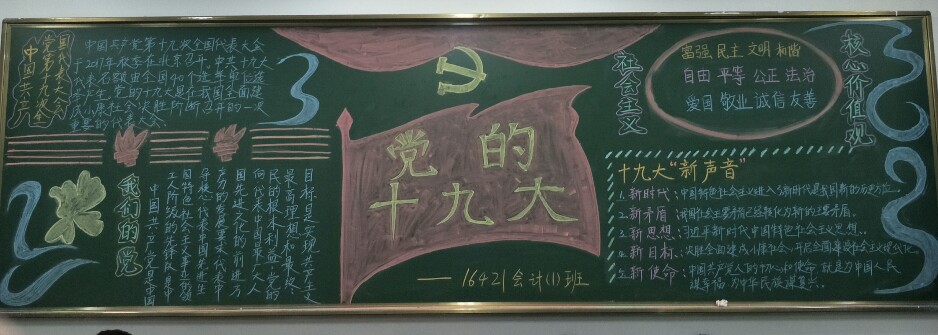 中国共产党第十九次全国代表大会
中国共产党第十九次全国代表大会
于2017年秋季在北京召开。中共十九大
代表名额由全国40个选举单位选
产生。党的十九大是在我国全面建
成小康社会决胜阶段召开的一次
重要的代表大会。
我们的党
中国共产党是中国
工人阶级的先锋队,是中
国特色社会主义事业的领
导核心,代表中国先进生
产力的发展要求,代表中
国先进文化的前进方
向,代表中国最广大人
民的根本利益。党的
最高理想和最终
目标是实现共产主义
党的
十九大
——16421会计(1)班
社会主义
核心价值观
富强 民主 文明 和谐
自由 平等 公正 法治
爱国 敬业 诚信 友善
十九大“新声音”
1.新时代:中国特色社会主义进入新时代是我国新的历史方位。
2.新矛盾:我国社会主要矛盾已经转化为新的主要矛盾。
3.新思想:习近平新时代中国特色社会主义思想。
4.新目标:决胜全面建成小康社会,开启全面建设社会主义现代化
5.新使命:中国共产党人的初心和使命就是为中国人民
谋幸福,为中华民族谋复兴。